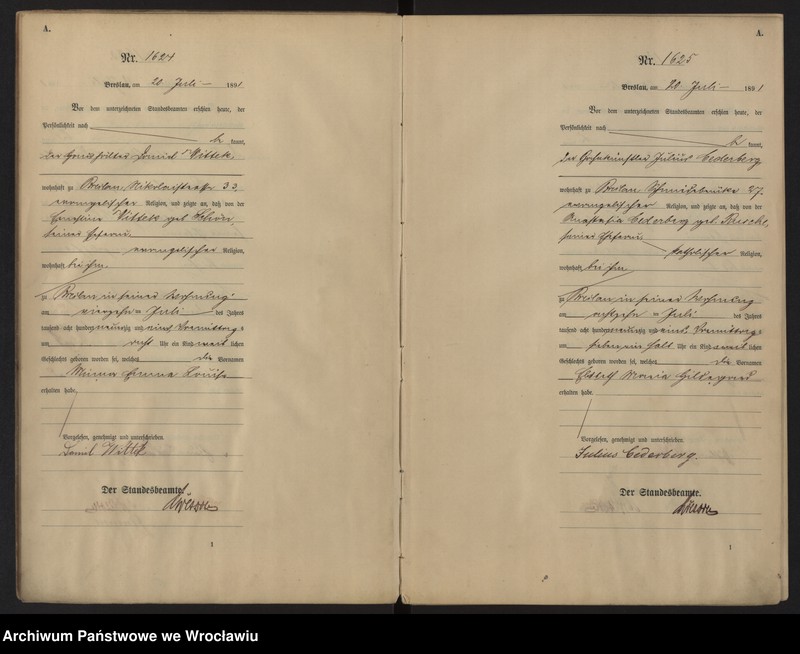 A.
Nr. 1624
Breslau, am 20 Juli 1891
Vor dem unterzeichneten Standesbeamten erschien heute, der
Persönlichkeit nach
be kannt,
der Haushälter Daniel Wittek
wohnhaft zu Breslau, Nikolaistraße 33,
evangelischer Religion, und zeigte an, daß von der
Ernstine Wittek geb.
seiner Ehefrau
evangelischer Religion,
wohnhaft bei ihm
zu Breslau in seiner Wohnung
am vierzehn ten Juli des Jahres
tausend acht hundert neunzig und eins Vormittags
um acht Uhr ein Kind weib lichen
Geschlechts geboren worden sei, welches die Vornamen
Emma
erhalten habe.
Vorgelesen, genehmigt und unterschrieben.
Wittek
Der Standesbeamte.
1
A.
Nr. 1625
Breslau, am 20 Juli 1891
Vor dem unterzeichneten Standesbeamten erschien heute, der
Persönlichkeit nach
be kannt,
der Julius Cederberg
wohnhaft zu Breslau, 27,
evangelischer Religion, und zeigte an, daß von der
Anastasia Cederberg geb.
seiner Ehefrau
katholischer Religion,
wohnhaft bei ihm
zu Breslau in seiner Wohnung
am achtzehn ten Juli des Jahres
tausend acht hundert neunzig und eins Vormittags
um sieben ein halb Uhr ein Kind weib lichen
Geschlechts geboren worden sei, welches die Vornamen
Maria
erhalten habe.
Vorgelesen, genehmigt und unterschrieben.
Julius Cederberg.
Der Standesbeamte.
1
Archiwum Państwowe we Wrocławiu